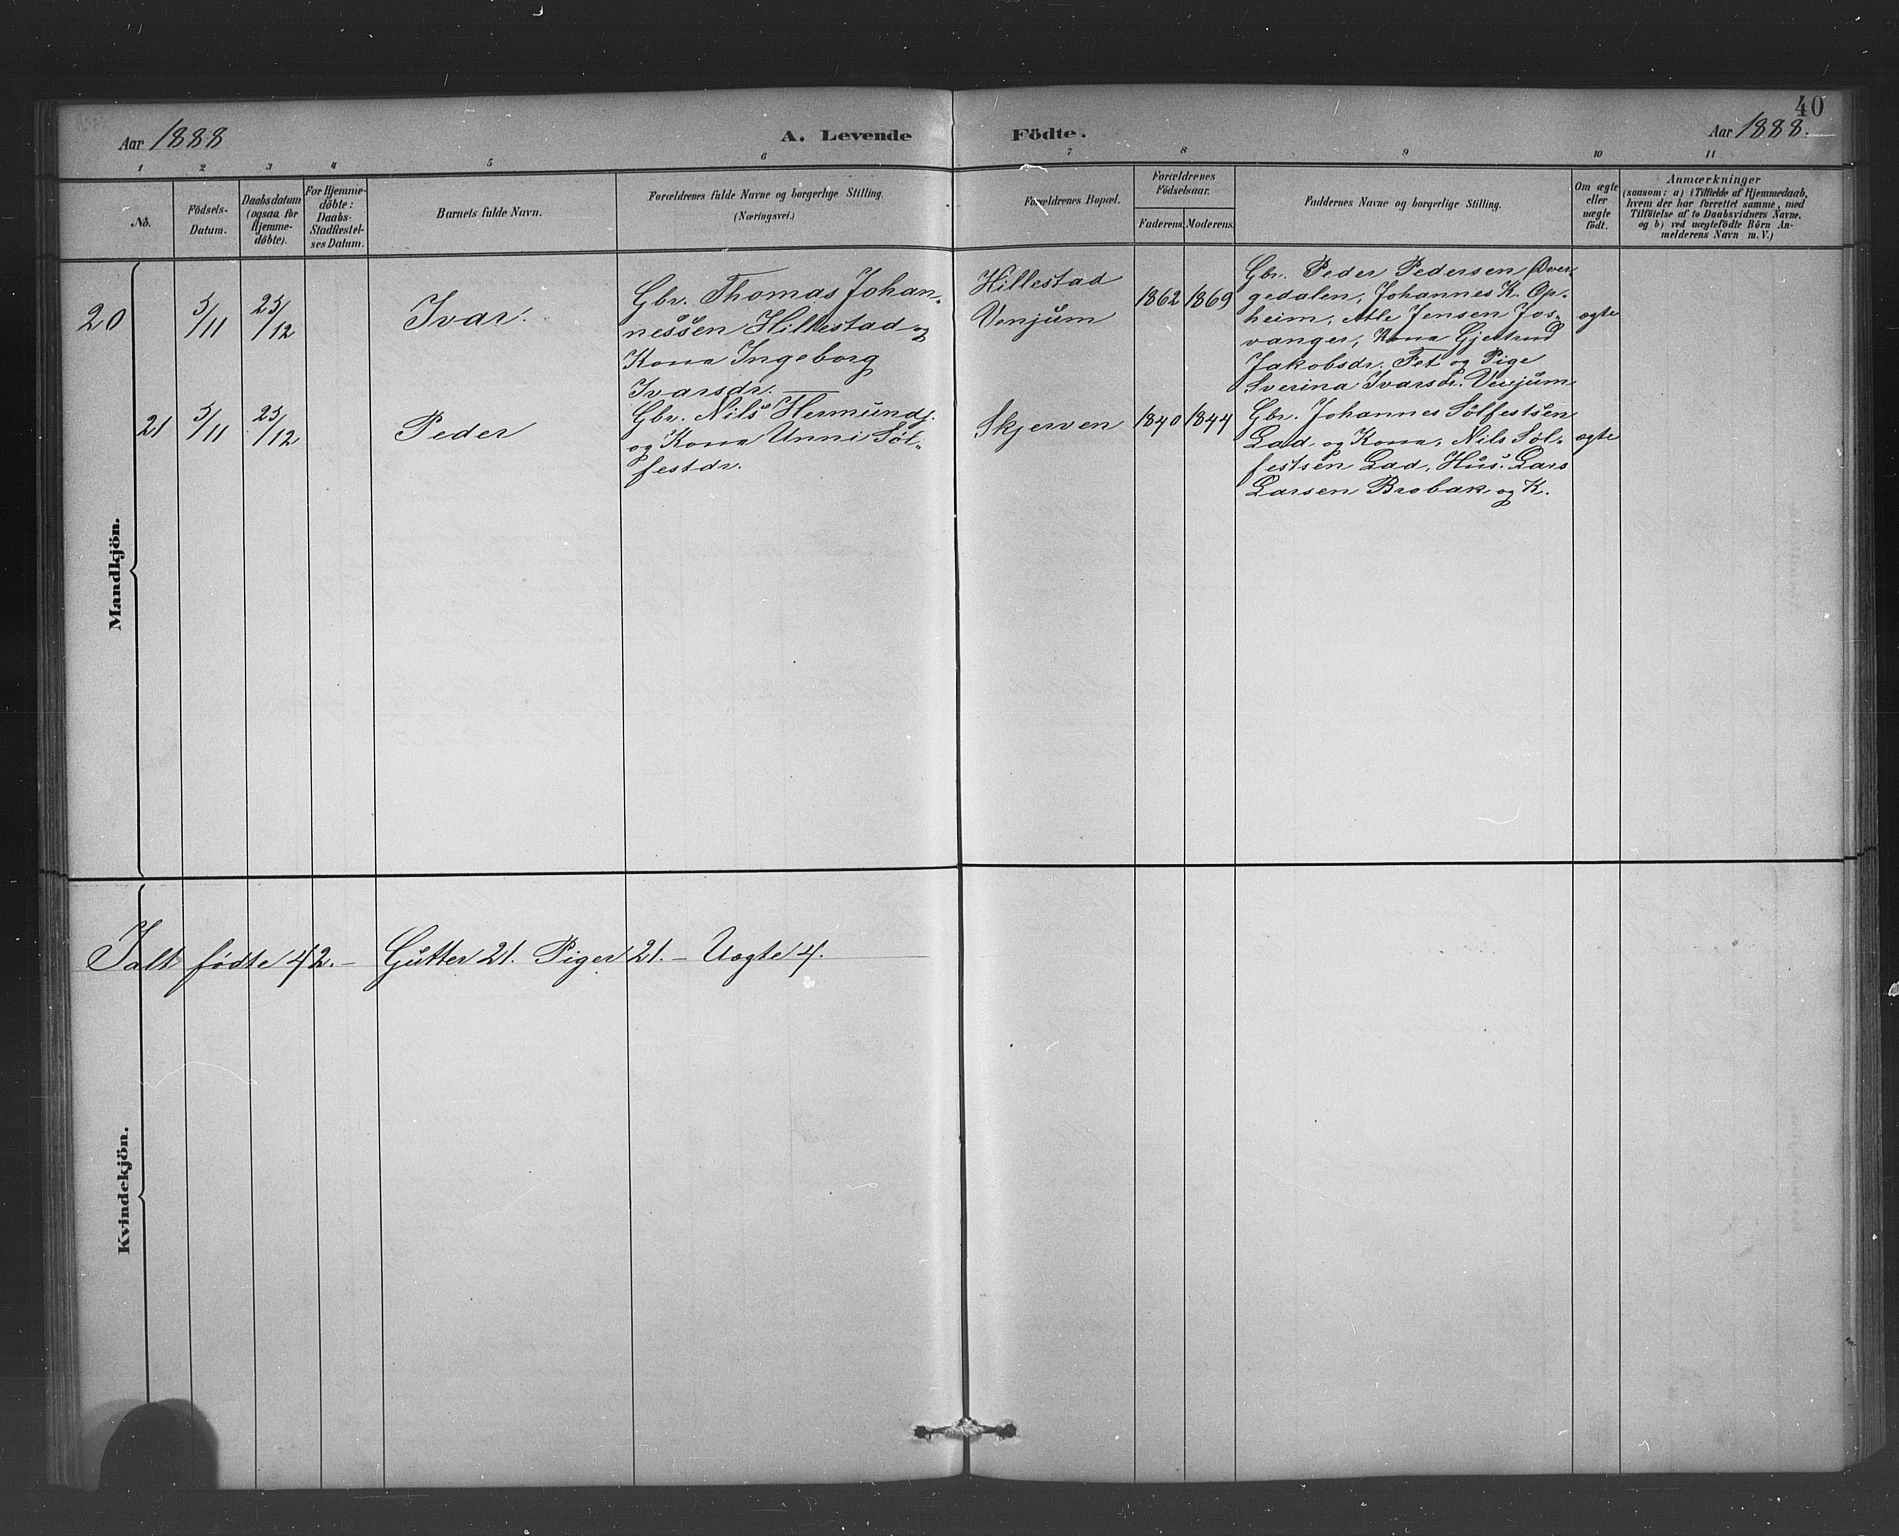 40
Aar 1888
A. Levende Födte.
Aar 1888.
1 2 3 4 5 6 7 8 9 10 11
No.
Födsels-
Datum.
Daabsdatum
(ogsaa for
Hjemme-
döbte).
For Hjemme-
döbte:
Daabs-
Stadfæstel-
ses Datum.
Barnets fulde Navn.
Forældrenes fulde Navne og borgerlige Stilling.
(Næringsvei.)
Forældrenes Bopæl.
Forældrenes
Födselsaar.
Faderens. Moderens.
Faddernes Navne og borgerlige Stilling.
Om ægte
eller
uægte
födt.
Anmærkninger
(saasom: a) i Tilfælde af Hjemmedaab,
hvem der har forrettet samme, med
Tilföielse af to Daabsvidners Navne,
og b) ved uægtefödte Börn An-
melderens Navn m. V.)
Mandkjön.
20
5/11
25/12
Ivar.
Gbr. Thomas Johan-
nessen Hillestad og
Kona Ingeborg
Ivarsdr.
Hillestad
Venjum
1862 1869
Gbr. Peder Pedersen Over-
gedalen, Johannes K. Op-
heim, Atle Jensen Jos-
vanger, Kona Gjertrud
Jakobsdr. Fet og Pige
Sverina Ivarsdr. Venjum
ægte
21
5/11
25/12
Peder
Gbr. Nils Hermunds.
og Kona Unni Søl-
festdr.
Skjerven
1840 1844
Gbr. Johannes Sølfestsen
Lad og Kona, Nils Søl-
festsen Lad, Hus. Lars
Larsen Brobak og K.
ægte
Kvindekjön.
Ialt fødte 42. - Gutter 21. Piger 21. - Uægte 4.